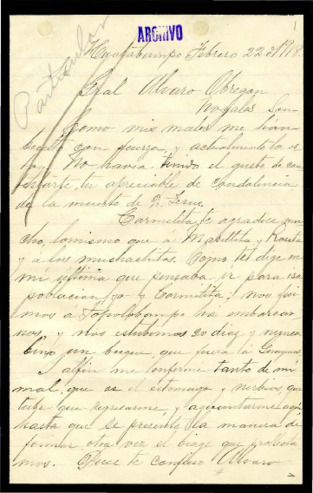 ARCHIVO
Particular
Huatabampo Febrero 22 de 1918
Gral Alvaro Obregon
Nogales Son
Como mis males me han
con fuerza, y actualmente lo es
No havia tenido el gusto de con
testarte, tu apreciable de condolencia
de la muerte de D. Jesus
Carmelita te agradece mu
cho, lo mismo que á y
y á los muchachitos. Como les dige en
mi ultima que pensaba ir para esa
poblacion, yo y Carmelita; nos fui
mos á Topolobampo ha embarcar
nos, y nos estubimos 20 dias y nunca
bino un buque, que fuera a Guaymas,
alfin me enferme tanto de mi
mal, que es el estomago y nerbios, que
tube que regresarme, y aguantarme aqui
hasta que se presente la manera de
formar otra vez el biage que
mos. Pues te confieso Alvaro